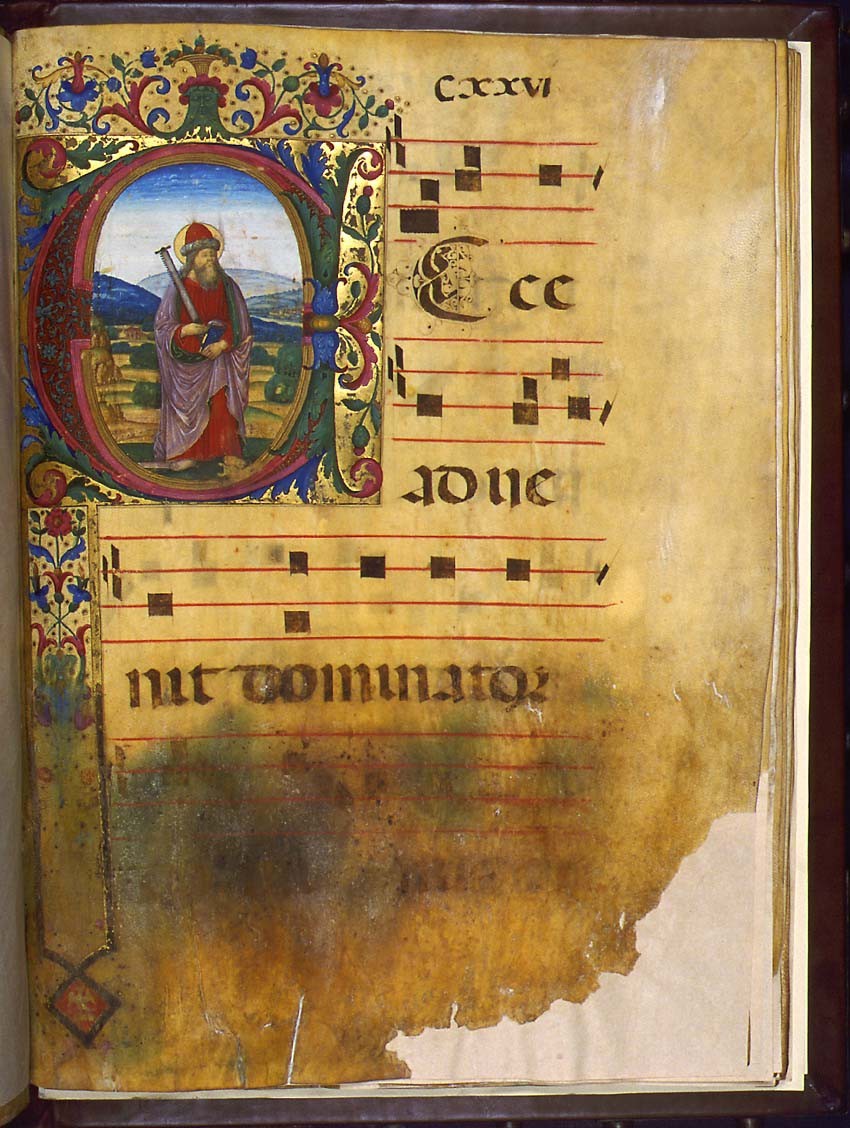 CXXVI
ECce
adue
nit dominator